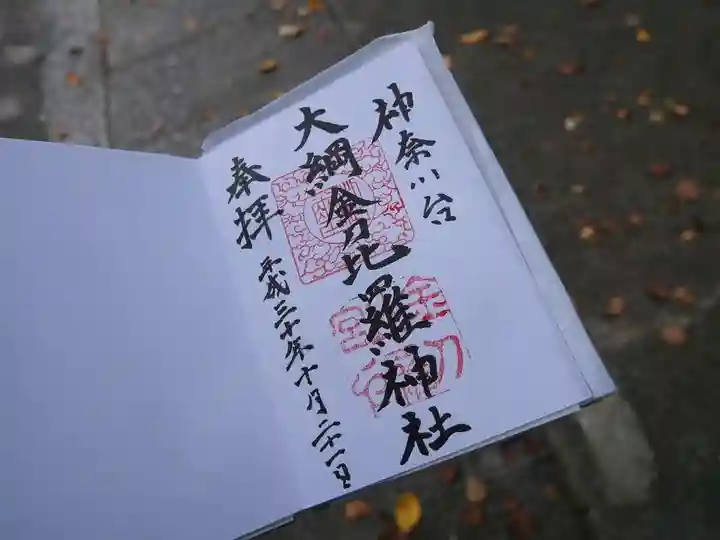 神奈川台
大綱金刀比羅神社
奉拝
平成三十年十月二十一日